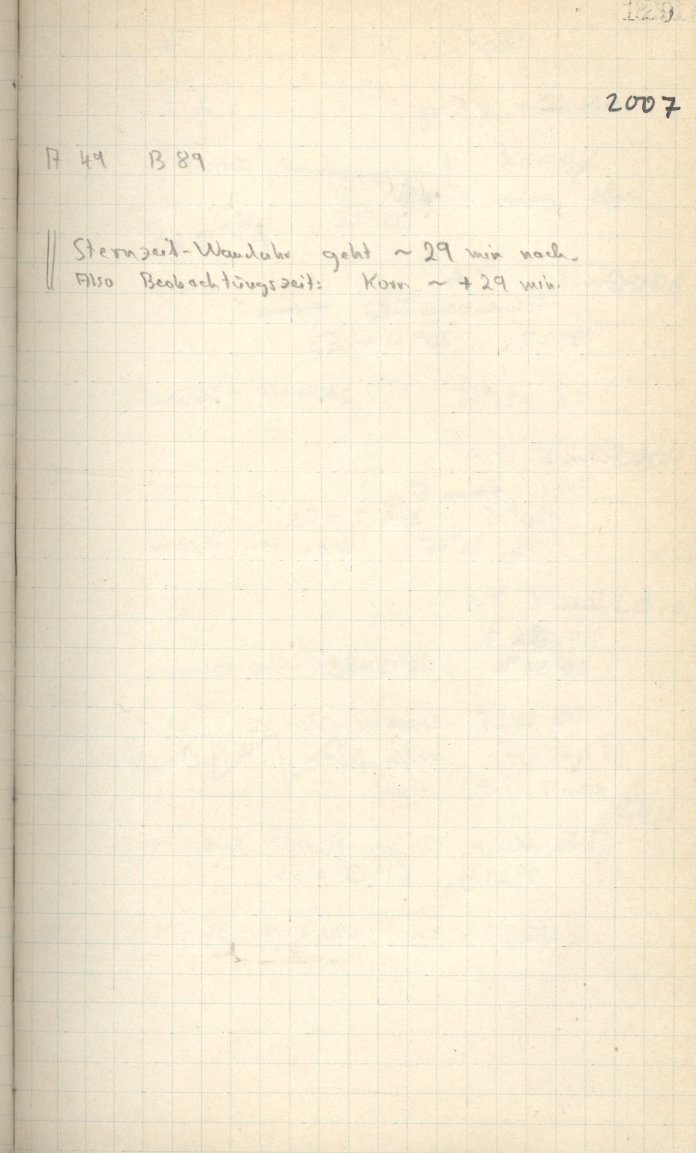 129
2007
A 49 B 89
Sternzeit-Wanduhr geht ~ 29 min nach.
Also Beobachtungszeit: Korr. ~ + 29 min.